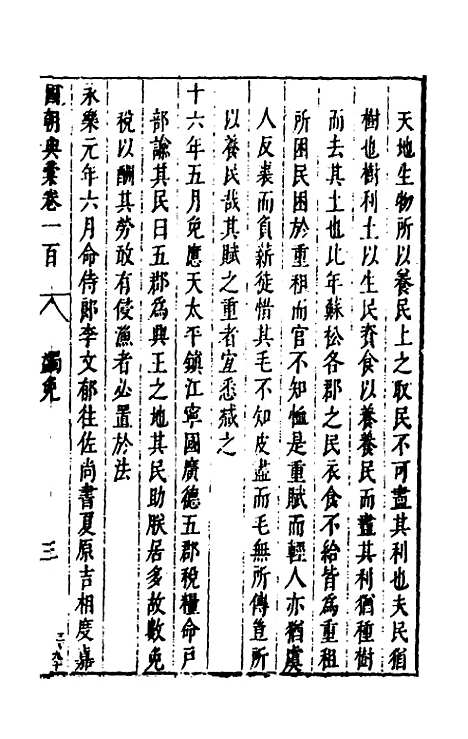 天地生物所以養民上之取民不可盡其利也夫民猶
樹也樹利土以生民資食以養養民而盡其利猶種樹
而去其土也比年蘇松各郡之民衣食不給皆為重租
所困民困於重租而官不知恤是重賦而輕人亦猶虞
人反裘而負薪徒惜其毛不知皮盡而毛無所傅豈所
以養民哉其賦之重者宜悉減之
十六年五月免應天太平鎮江寧國廣德五郡稅糧命戸
部諭其民曰五郡為興王之地其民助朕居多故數免
稅以酬其勞敢有侵漁者必置於法
永樂元年六月命侍郎李文郁往佐尚書夏原吉相度嘉
國朝典彙卷一百 八 蠲免 三